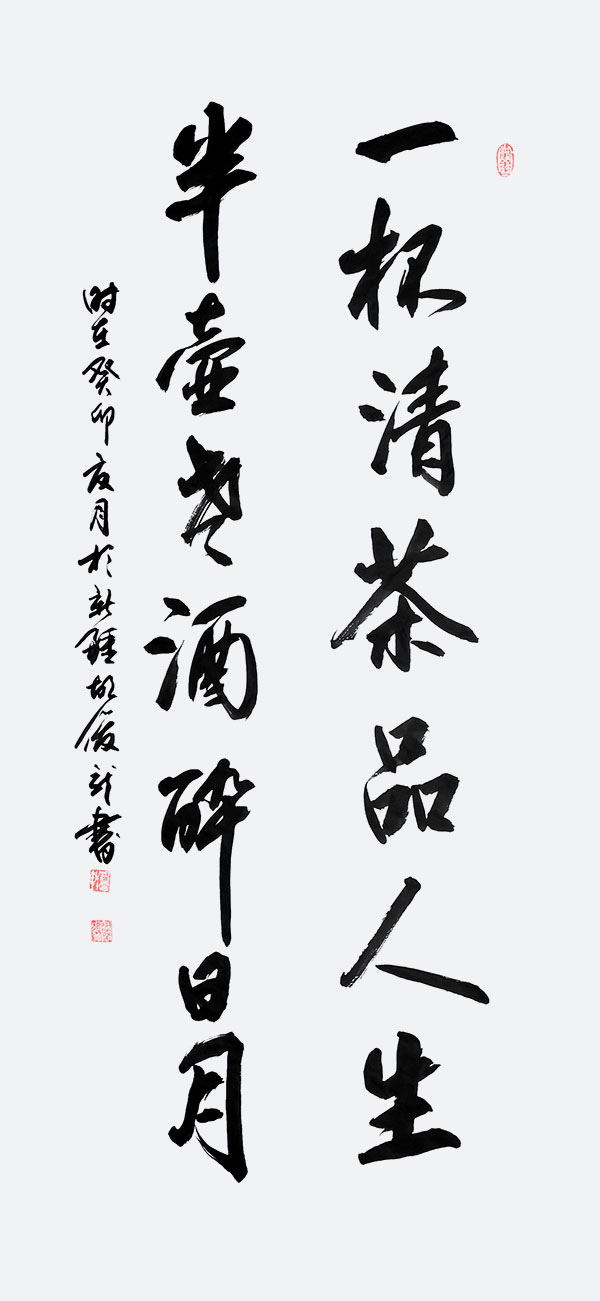 一杯清茶品人生
半壺老酒醉日月
时在癸卯夏月於新疆胡書